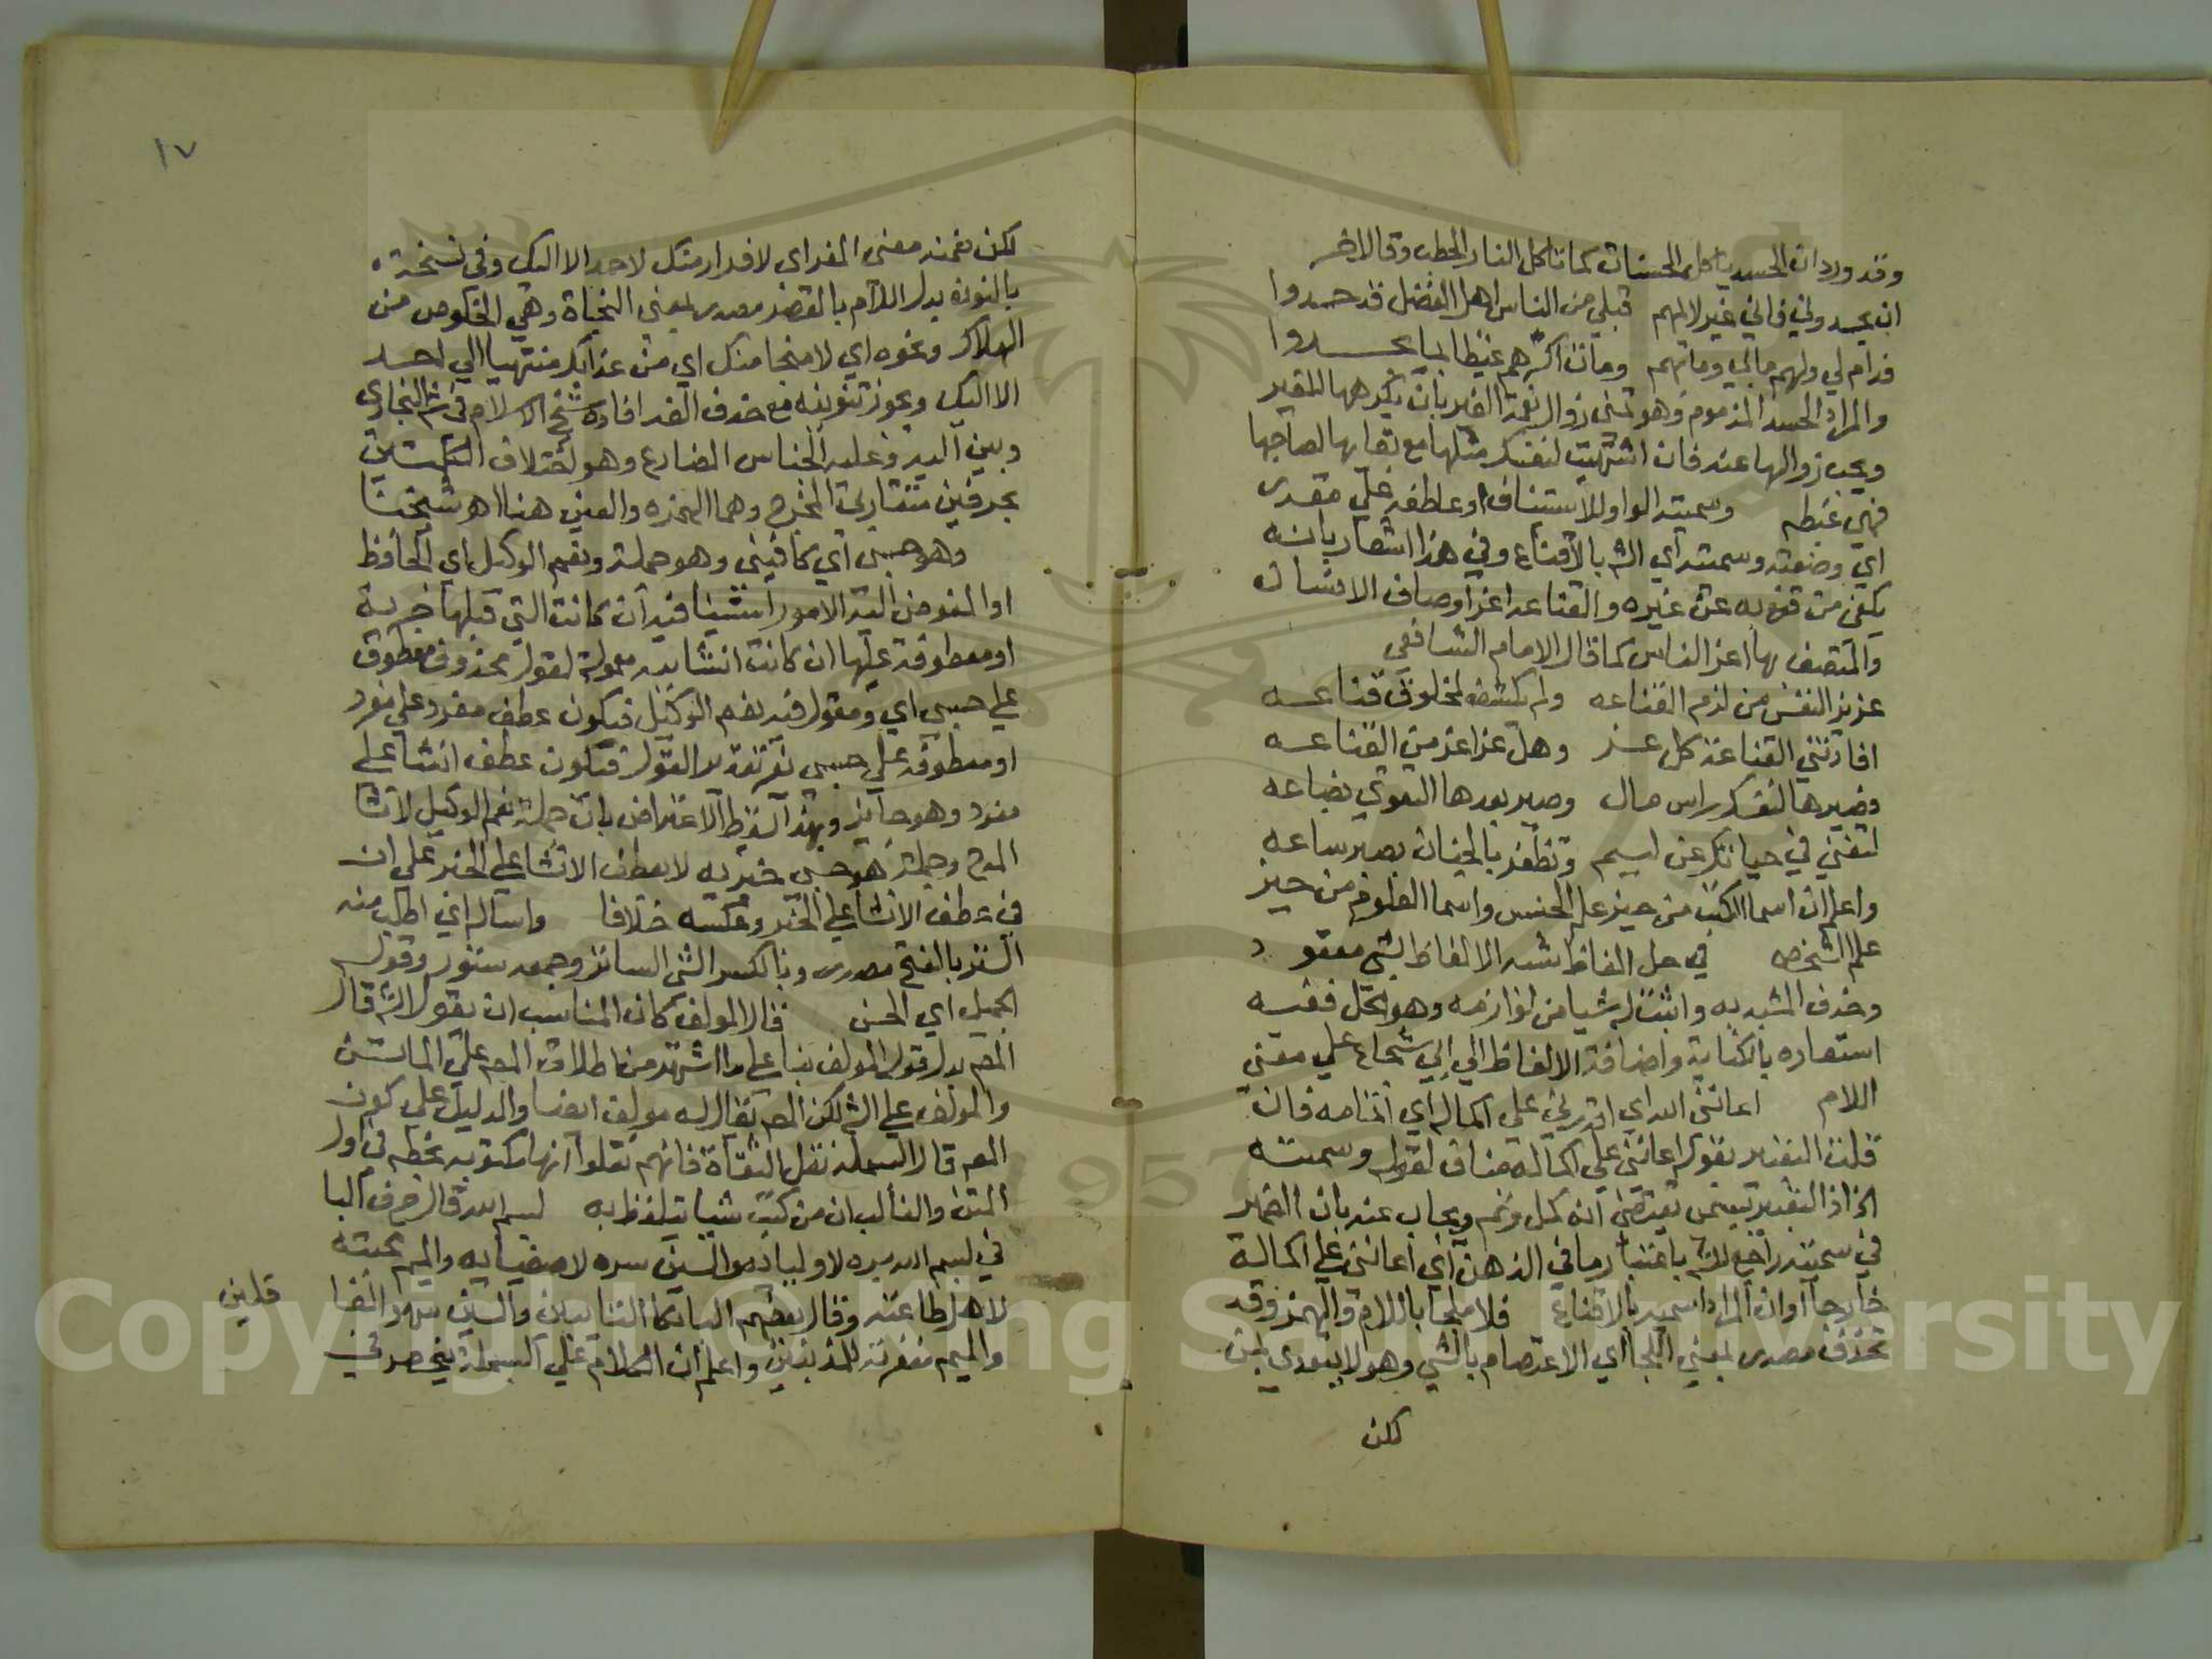 وقد ورد ان الحسد ياكل الحسنات كما تاكل النار الحطب وقال الاخر
ان يحسدوني فاني غير لائمهم قبلي من الناس اهل الفضل قد حسدوا
فدام لي ولهم ما بي وما بهم ومات اكثرهم غيظا بما يحسدوا
والمراد الحسد المذموم وهو تمني زوال نعمة الغير بان يكرهها للغير
ويحب زوالها عنه فان اشتهيت لنفسك مثلها مع بقايها لصاحبها
فهي غبطه وسميته الواو للاستئناف او عاطفه علي مقدر
اي وضعته وسميته اي الش بالاقناع وفي هذا اشعار بانه
يكفي من قنع به عن غيره والقناعه اعز اوصاف الانسان
والمتصف بها اعز الناس كما قال الامام الشافعي
عزيز النفس من لزم القناعه ولم يكشف لمخلوق قناعه
افادتني القناعة كل عز وهل عز اعز من القناعه
فصيرها لنفسك راس مال وصير بعدها التقوي بضاعه
لتغني في حياتك عن لييم وتظفر بالجنان بصبر ساعه
واعلم ان اسما الكتب من حيز علم الجنس واسما العلوم من حيز
علم الشخص في حل الفاظ شبه الالفاظ بشي معقود
وحذف المشبه به واثبت له شيا من لوازمه وهو الحل ففيه
استعاره بالكناية واضافة الالفاظ الي ابي شجاع علي معني
اللام اعانني الله اي اقدرني علي اكماله اي اتمامه فان
قلت التعبير بقوله اعانني علي اكماله مناف لقوله وسميته
الخ اذ التعبير بسميته يقتضي انه كمل وتم ويجاب عنه بان الضمير
في سميته راجع للش باعتبار ما في الذهن اي اعانني علي اكماله
خارجا او ان المراد اسميه بالاقناع فلا ملجا باللام والهمز وقد
تحذف مصدر بمعني اللجا اي الاعتصام بالشي وهو لا يتعدي بمن
لكن
١٧
لكن ضمنه معني المفر اي لا فرار منك لاحد الا اليك وفي نسخة
بالنون بدل اللام بالقصر مصدر بمعني النجاة وهي الخلوص من
الهلاك ونحوه اي لا منجا منك اي من عذابك منتهيا الي احد
الا اليك ويجوز تنوينه مع حذف الف افاده شيخ الاسلام في ش البخاري
وبين اليه وعليه الجناس المضارع وهو اختلاف الكلمتين
بحرفين متقاربي المخرج وهما الهمزه والعين هنا اهـ شيخنا
وهو حسبي اي كافيني وهو جملة ونعم الوكيل اي الحافظ
او المفوض اليه الامور استئنافيه ان كانت التي قبلها خبرية
او معطوفة عليها ان كانت انشاييه معمولة لقول محذوف معطوف
علي حسبي اي ومقول فيه نعم الوكيل فيكون عطف مفرد علي مفرد
او معطوفه علي حسبي بغير تقدير القول فيكون عطف انشا علي
مفرد وهو جايز وبهذا سقط الاعتراض بان جملة نعم الوكيل لانشا
المدح وجملة هو حسبي خبريه لا يعطف الانشا علي الخبر علي ان
في عطف الانشا علي الخبر وعكسه خلافا واساله اي اطلب منه
الستر بالفتح مصدر وبالكسر الشي الساتر وجمعه ستور وقوله
الجميل اي الحسن قال المولف كان المناسب ان يقول الش قال
المص بدل قوله المولف بناء علي ما اشتهر من اطلاق المص علي الماتن
والمولف علي الش لكن المص يقال له مولف ايضا والدليل علي كون
المص قال البسملة نقل الثقاة فانهم نقلوا انها مكتوبه بخطه في اول
المتن والغالب ان من كتب شيا يتلفظ به بسم الله قال حرف البا
في بسم الله بره لاوليائه والسين سره لاصفيايه والميم محبته
لاهل طاعته وقال بعضهم البا بكا التايبين والسين سهو الغا
فلين
والميم مغفرته للمذنبين واعلم ان الكلام علي البسملة ينحصر في
Copyright © King Saud University
1957